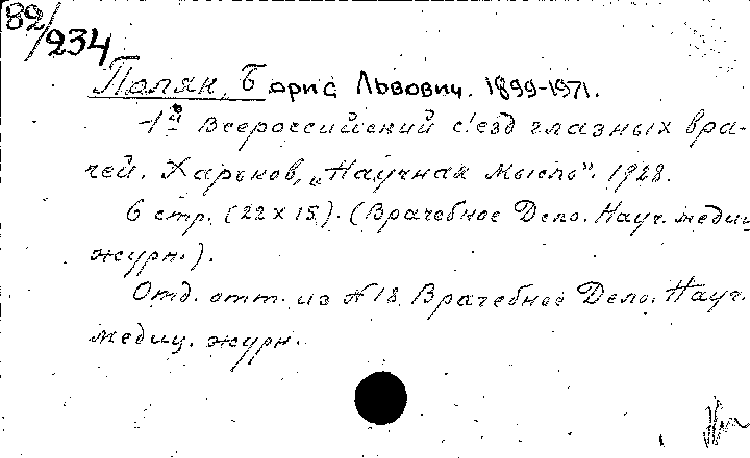 82/234
Поляк, Борис Львович. 1899-1971.
1й Всероссийский с'езд глазных вра-
чей. Харьков, „Научная мысль". 1928.
6 стр. (22 х 15). (Врачебное Дело. Науч. медиц.
журн.).
Отд. отт. из №18 Врачебное Дело. Науч.
медиц. журн.